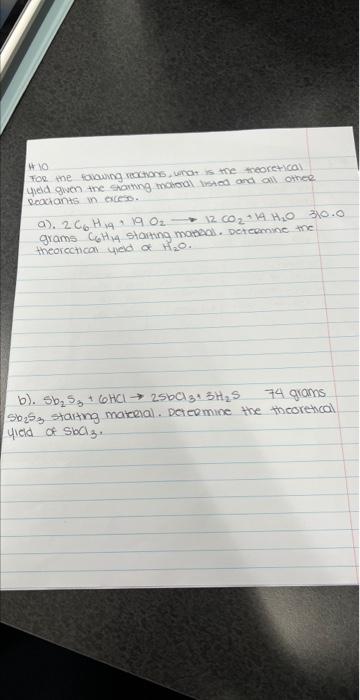 #10
For the following reactions, what is the theoretical
yield given the starting material listed and all other
Reactants in excess.
a). 2C₆H₁₄ + 19 O₂ → 12 CO₂ + 14 H₂O 310.0
grams C₆H₁₄ starting material. Determine the
theorectical yield of H₂O.
b). Sb₂S₃ + 6HCl → 2SbCl₃ + 3H₂S 74 grams
Sb₂S₃ starting material. Determine the theoretical
yield of SbCl₃.